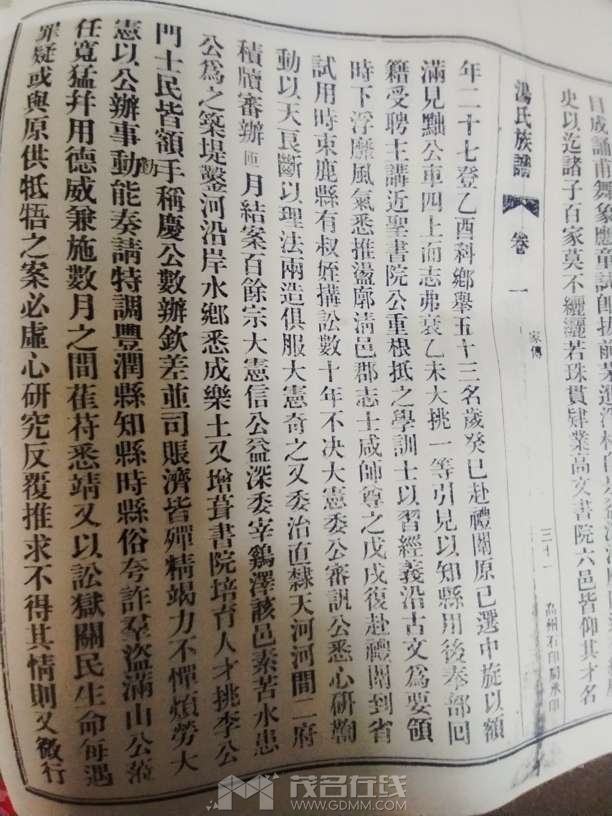 目成誦甫舞象應童試師拔前茅
史以迄諸子百家莫不纚纚若珠貫肄業高文書院六邑皆仰其才名
湯氏族譜
卷一
家傳
三十一
高州石印局承印
年二十七登乙酉科鄉舉五十三名歲癸巳赴禮闈原已選中旋以額
滿見黜公車四上而志弗衰乙未大挑一等引見以知縣用後奉部回
籍受聘主講近聖書院公重根抵之學訓士以習經義沿古文為要領
時下浮靡風氣悉推盪廓清邑郡志士咸師尊之戊戌復赴禮闈到省
試用時束鹿縣有叔姪搆訟數十年不決大憲委公審訊公悉心研鞫
動以天良斷以理法兩造俱服大憲奇之又委治直隸天河河間二府
積牘審辦匝月結案百餘宗大憲信公益深委宰鷄澤該邑素苦水患
公爲之築堤鑿河沿岸水鄉悉成樂土又增葺書院培育人才挑李公
門士民皆額手稱慶公數辦欽差並司賑濟皆殫精竭力不憚煩勞大
憲以公辦事勤能奏請特調豐潤縣知縣時縣俗夸詐羣盜滿山公蒞
任寬猛幷用德威兼施數月之間萑苻悉靖又以訟獄關民生命每遇
罪疑或與原供牴牾之案必虛心研究反覆推求不得其情則又微行
茂名在线
WWW.GDMM.COM